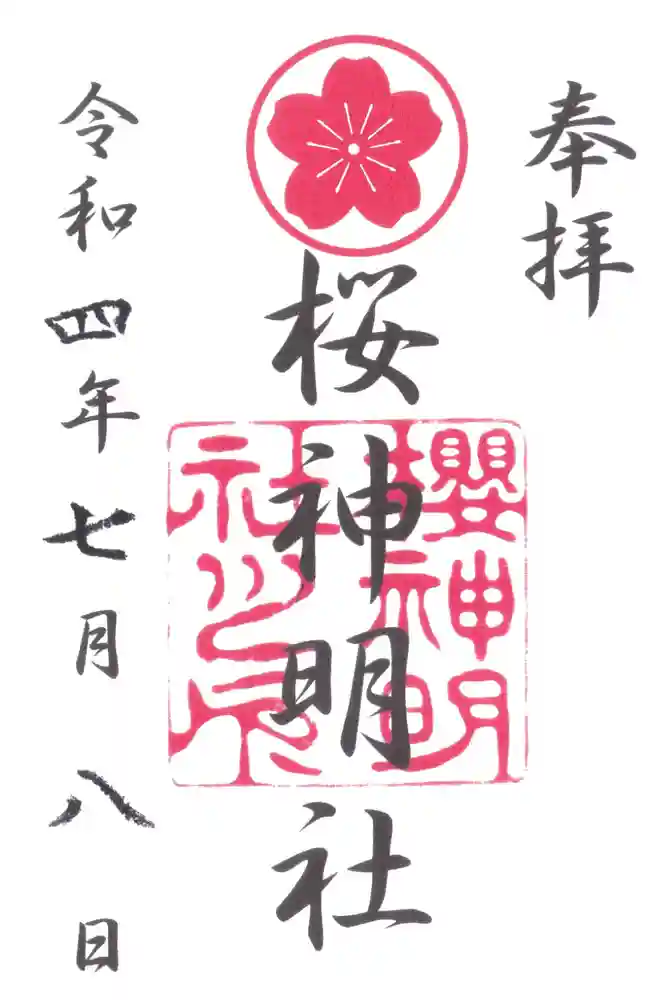 奉拝
桜神明社
櫻神明
社之印
令和四年七月八日